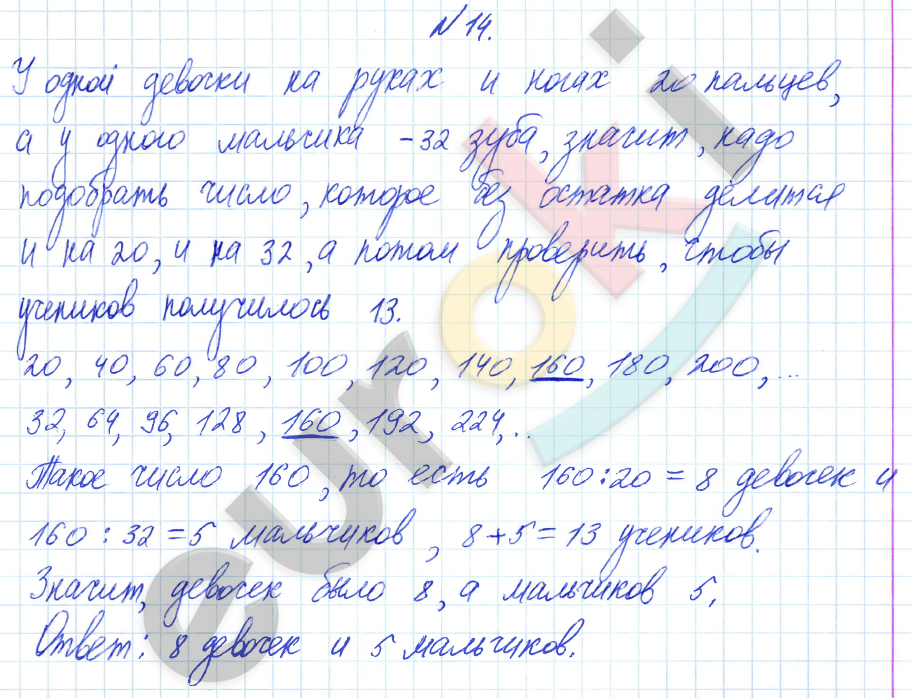 №14.
У одной девочки на руках и ногах 20 пальцев,
а у одного мальчика -32 зуба, значит, надо
подобрать число, которое без остатка делится
и на 20, и на 32, а потом проверить, чтобы
учеников получилось 13.
20, 40, 60, 80, 100, 120, 140, 160, 180, 200, ...
32, 64, 96, 128, 160, 192, 224, ..
Такое число 160, то есть 160:20=8 девочек и
160:32=5 мальчиков, 8+5=13 учеников.
Значит, девочек было 8, а мальчиков 5.
Ответ: 8 девочек и 5 мальчиков.
euroki